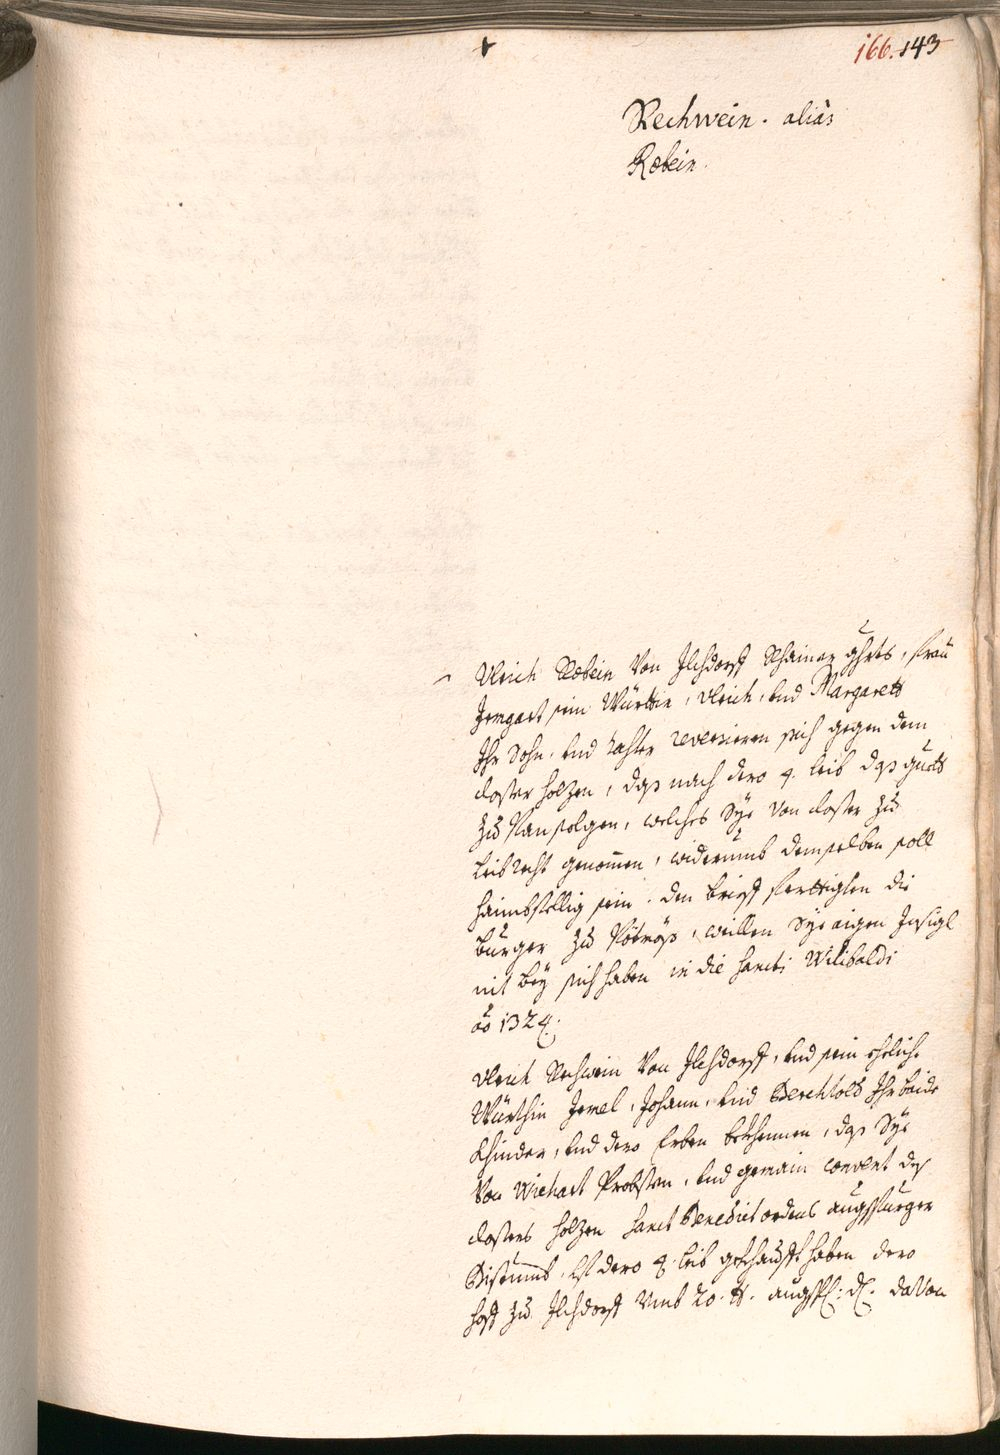 166. 143
Rechwein. alias
Robein.
Ulrich Robein Von Ilchdorff Rhainer għrts, Frau
Irmgart sein Württin, Ulrich, und Margarett
Ihr Sohn, und Tochter reversieren sich gegen dem
closter Holzen, daß nach dero 4. leib daß guett
zu Pansolgen, welches Sye Von closter zu
leibrecht genommen, widerumb demselben soll
haimbstellig sein. den brieff ferttigten die
burger zu Pötmöß, weillen Sye aigen Insigl
nit bey sich haben in die sancti Wilibaldi
ao 1324.
Ulrich Rechwein Von Ilchdorff, und sein ehelich
Würthin Irmel, Johann, und Berchtold Ihr beide
Khinder, und dero Erben bekhennen, das Sye
Von Wichart Probsten, und gemain convent des
closters Holzen sanct Benedict ordens augspurger
Bistumb, uf dero 4. leib gekhaufft haben dero
hoff zu Ilchdorff umb 20. ℔. augsp: d. daVon